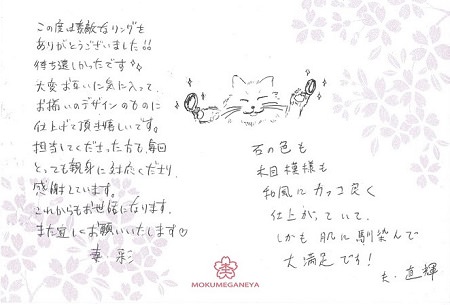 この度は素敵なリングを
ありがとうございました!!
待ち遠しかったです
大変お互いに気に入って、
お揃いのデザインのものに
仕上げて頂き嬉しいです。
担当してくださった方も毎回
とっても親身に対応くださり
感謝しています。
これからもお世話になります。
また宜しくお願いいたします♡
妻・彩
石の色も
木目模様も
和風にカッコ良く
仕上がっていて、
しかも肌に馴染んで
大満足です!
夫・直輝
MOKUMEGANEYA